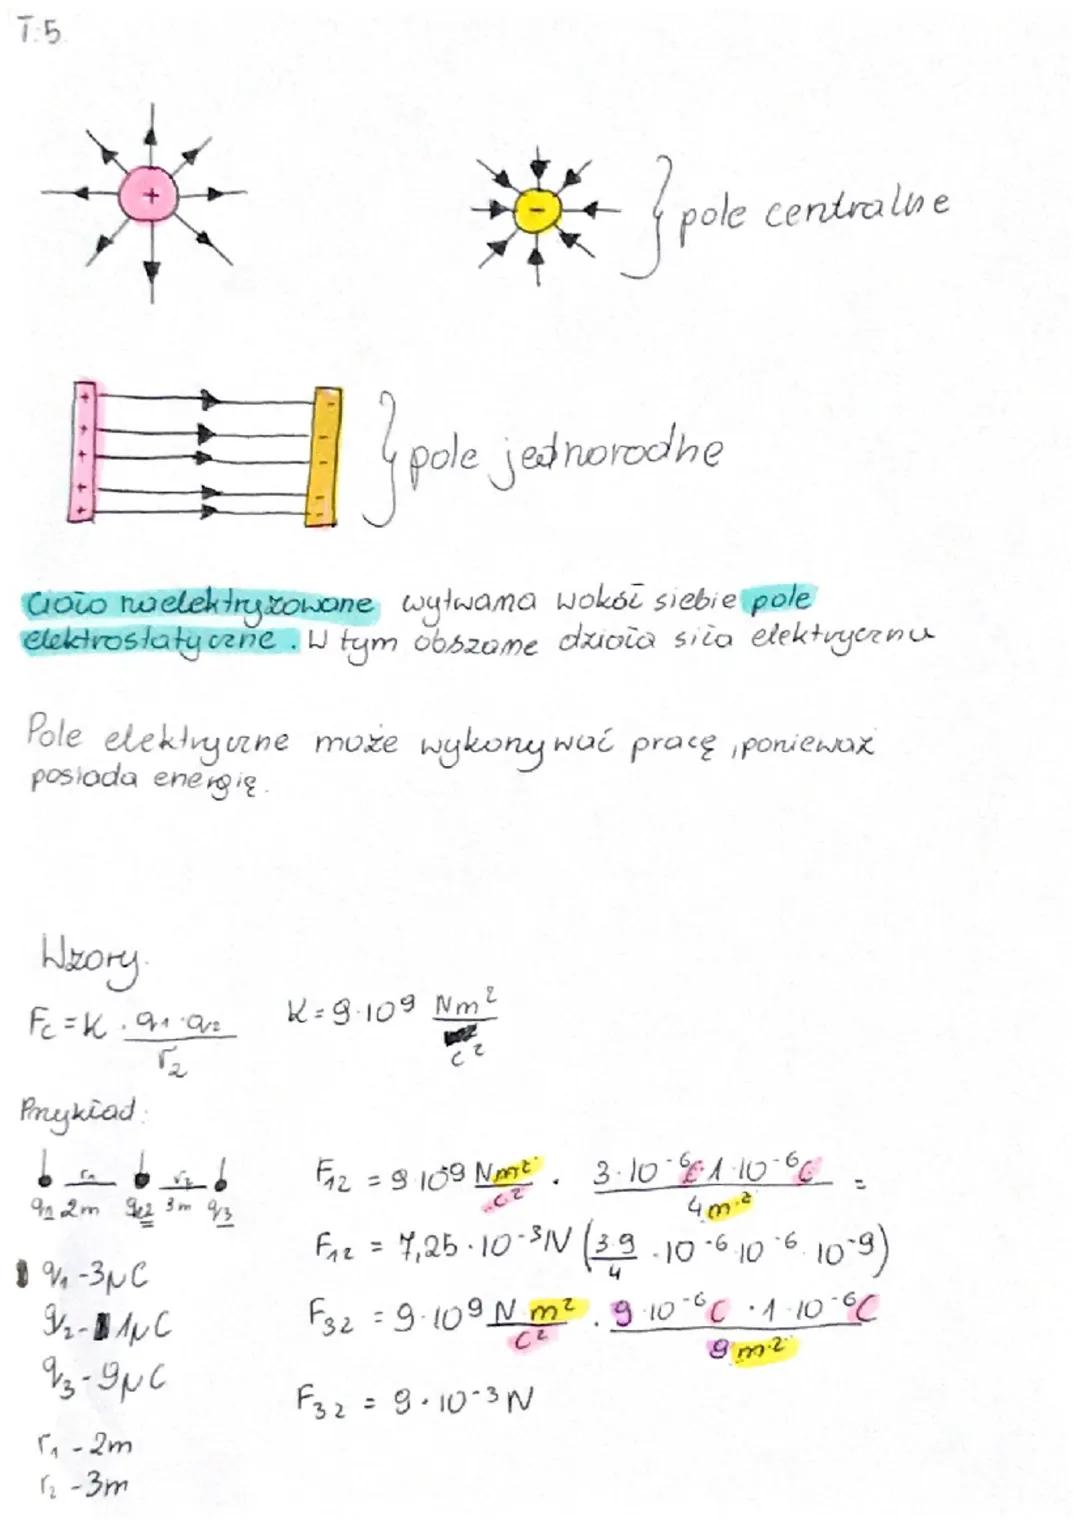 T:5.
+
-
pole centralne
+ -
+ -
+ -
+ -
+ -
pole jednorodne
Ciało naelektryzowane wytwarza wokół siebie pole
elektrostatyczne. W tym obszarze działa siła elektryczna
Pole elektryczne może wykonywać pracę, ponieważ
posiada energię.
Wzory.
Fc = K · q1·q2 / r2
K = 9·10^9 Nm² / C²
Przykład:
r1 r2
q1 2m q2 3m q3
q1 - 3μC
q2 - 1μC
q3 - 9μC
r1 - 2m
r2 - 3m
F12 = 9·10^9 Nm² / C² · 3·10^-6 C·1·10^-6 C / 4m² =
F12 = 7,25·10^-3 N (3·9 / 4 ·10^-6·10^-6·10^-9)
F32 = 9·10^9 N m² / C² · 9·10^-6 C ·1·10^-6 C / 9m²
F32 = 9·10^-3 N